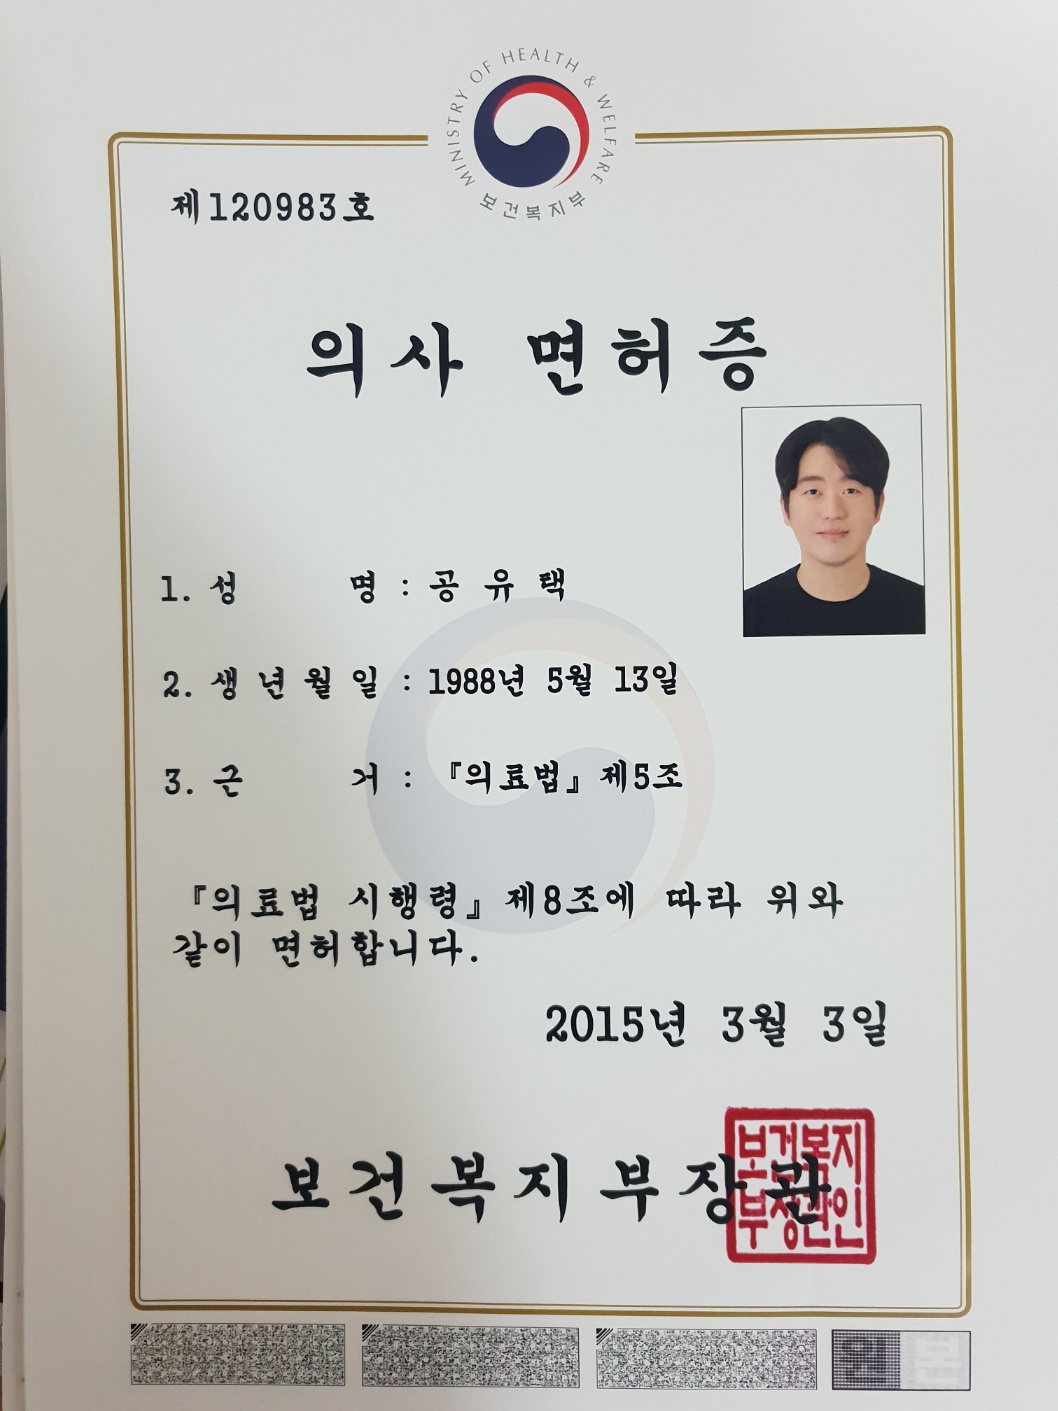 MINISTRY OF HEALTH & WELFARE
보건복지부
제120983호
의사 면허증
1. 성 명 : 공 유 택
2. 생 년 월 일 : 1988년 5월 13일
3. 근 거 : 『의료법』제5조
『의료법 시행령』제8조에 따라 위와
같이 면허합니다.
2015년 3월 3일
보건복지부장관
보건복지
부장관인
원본